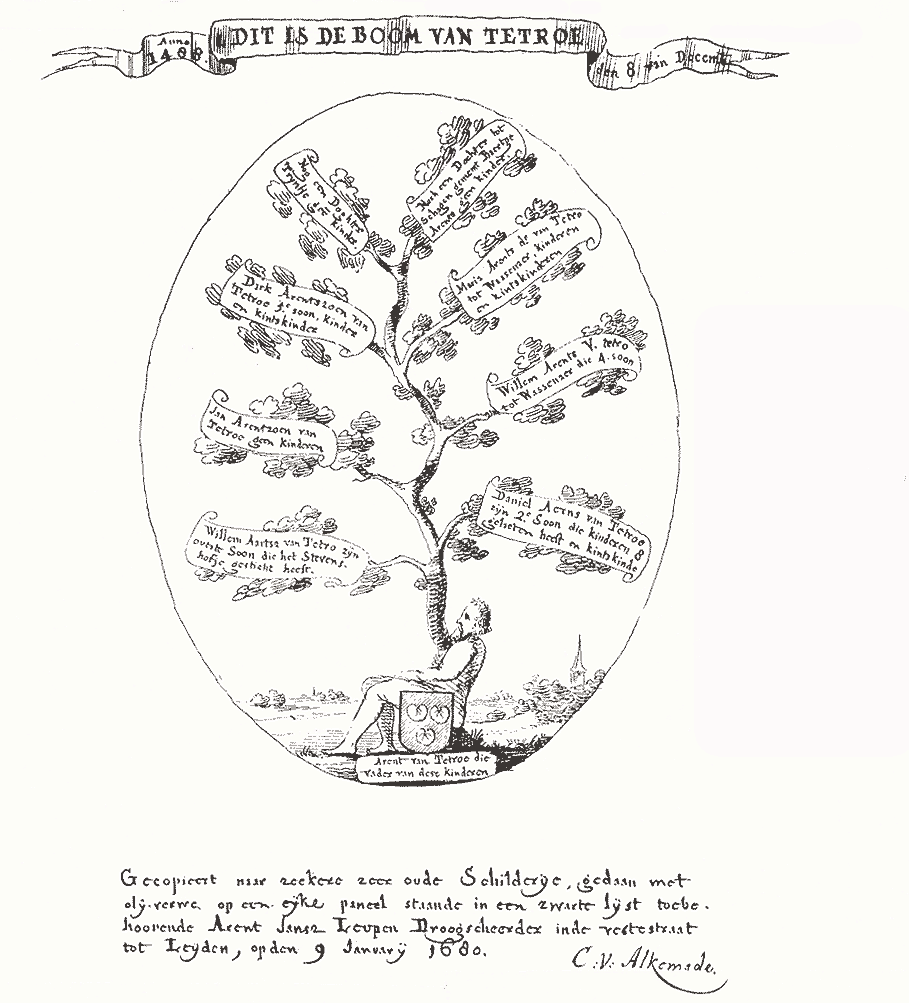 Anno
1488.
DIT IS DE BOOM VAN TETROE
den 8 van Decemb.
Noch een Dochter tot
Schagen genaemt Baertge
Arents geen kinder.
Nog een Dochter
Tryntje der
Geen Kinder
Muis Arents dr. van Tetro
tot Wassenaer kinderen
en kintskinderen
Dirk Arentszoen van
Tetroe 3e. soon, kinder
en kintskinder
Willem Arents V. tetro
tot Wassenaer die 4. soon
Jan Arentzoen van
Tetroe geen kinderen
Daniel Aerns van Tetroe
zijn 2e. Soon die kinderen 8
geheten heeft en kintskinde
Willem Aartsz van Tetro zijn
outste Soon die het Stevens.
hofje gesticht heeft.
Arent van Tetroe die
vader van dese kinderen
Gecopieert naar zeekere zeer oude Schilderye, gedaan met
oly.verwe op een eyke paneel staande in een zwarte lyst toebe.
hoorende Arent Jansz Leupen Droogscheerder inde vestestraat
tot Leyden, op den 9 January 1680.
C. V. Alkemade.